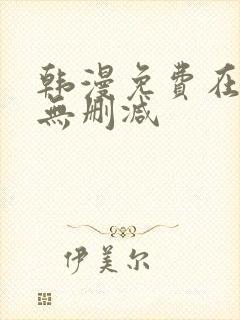 韩漫免費在
無删减
伊美尔